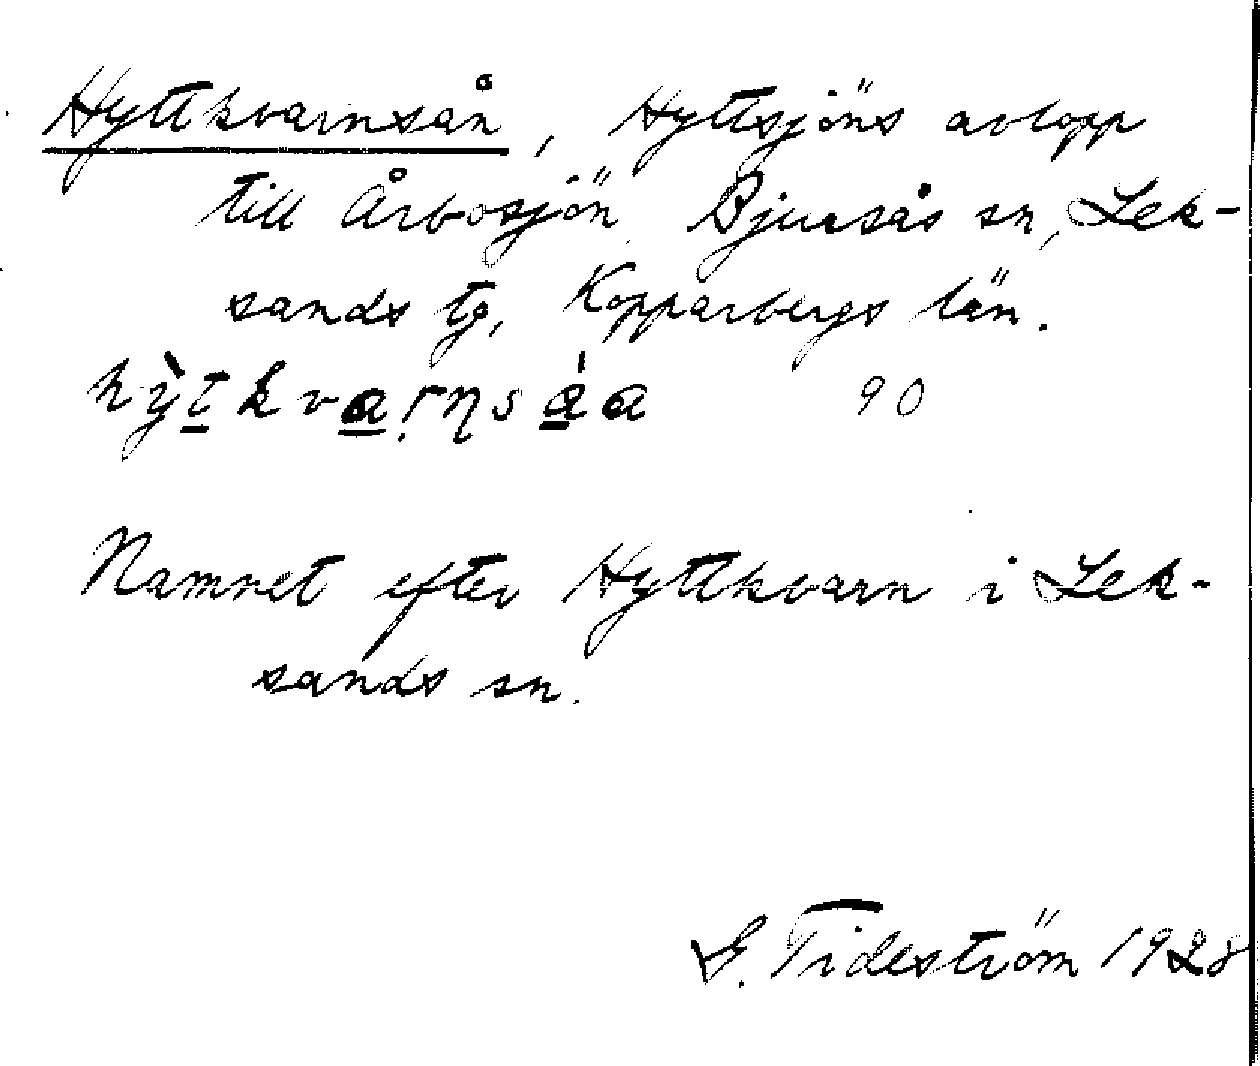 Hyttkvarnsån, Hyttsjöns avlopp
till Årbosjön, Bjursås sn, Lek-
sands tg, Kopparbergs län.
90
Namnet efter Hyttkvarn i Lek-
sands sn.
G. Tideström 1928